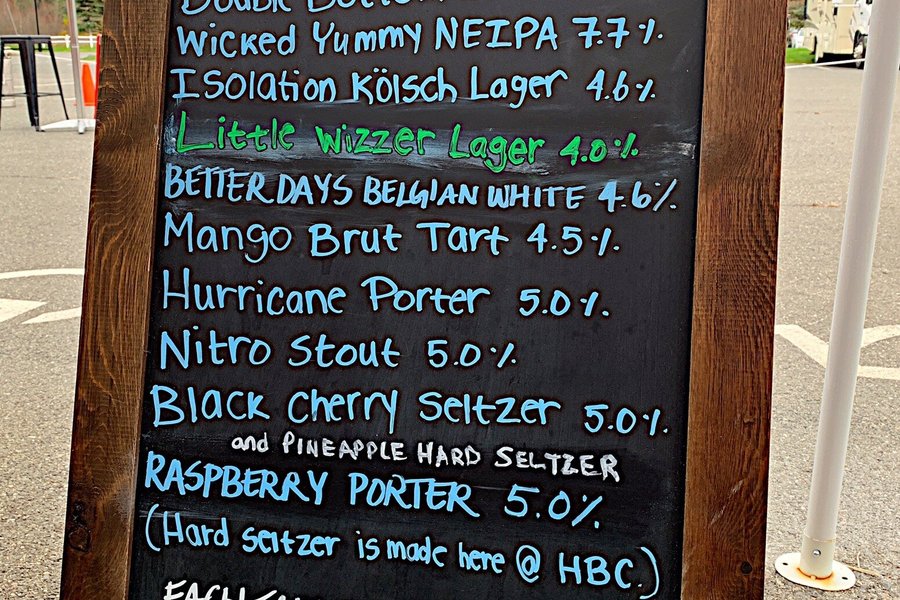 Double Bottom
Wicked Yummy NEIPA 7.7%
Isolation Kölsch Lager 4.6%
Little Wizzer Lager 4.0%
BETTER DAYS BELGIAN WHITE 4.6%
Mango Brut Tart 4.5%
Hurricane Porter 5.0%
Nitro Stout 5.0%
Black Cherry Seltzer 5.0%
and PINEAPPLE HARD SELTZER
RASPBERRY PORTER 5.0%
(Hard seltzer is made here @ HBC.)